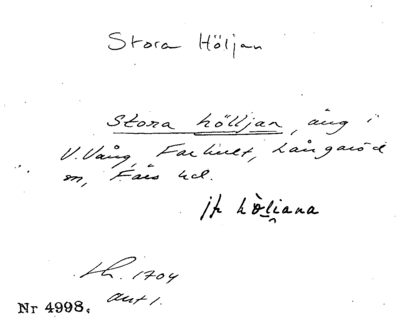 Stora Höljan
Stora hölljan, äng i
V. Vång, Farhult, Långaröd
sn, Färs hd.
jfr höliana
Lh. 1704
akt 1.
Nr 4998.